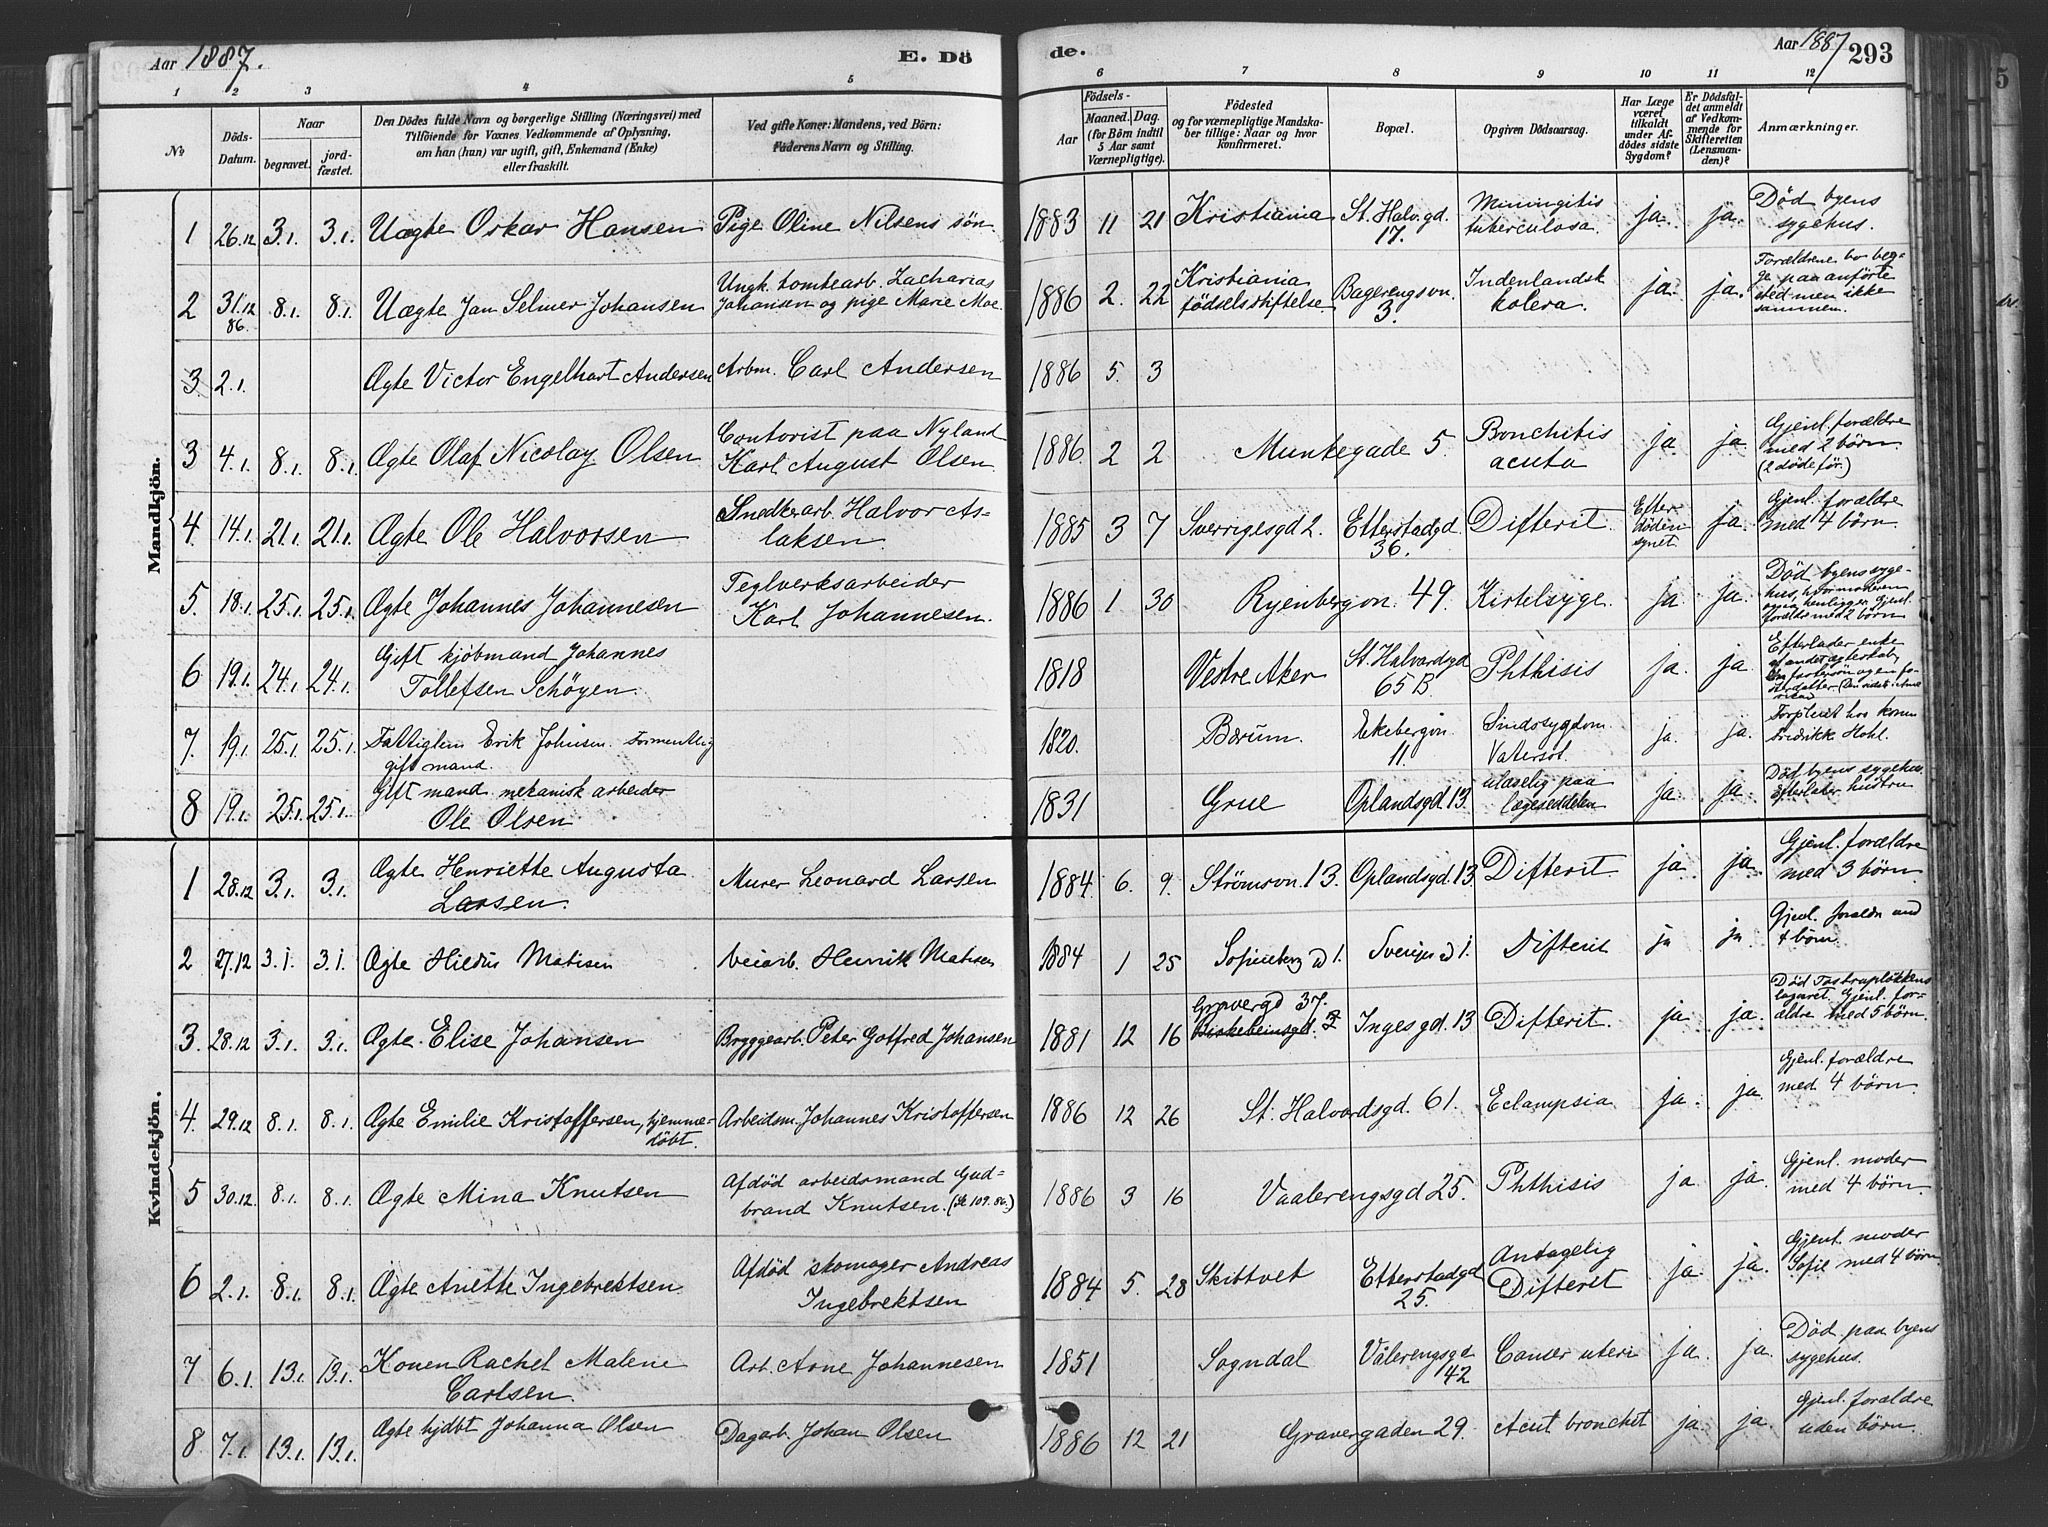 Aar 1887.
E. Dö
de.
Aar 1887
293
1 2 3 4 5 6 7 8 9 10 11 12
No
Döds-Datum.
Naar
begravet. jordfæstet.
Den Dödes fulde Navn og borgerlige Stilling (Næringsvei) med
Tilföiende for Voxnes Vedkommende af Oplysning,
om han (hun) var ugift, gift, Enkemand (Enke)
eller fraskilt.
Ved gifte Koner: Mandens, ved Börn:
Faderens Navn og Stilling.
Födsels-
Aar
Maaned. Dag.
(for Börn indtil
5 Aar samt
Værnepligtige).
Födested
og for værnepligtige Mandska-
ber tillige: Naar og hvor
konfirmeret.
Bopæl.
Opgiven Dödsaarsag.
Har Læge
været
tilkaldt
under Af-
dödes sidste
Sygdom?
Er Dödsfal-
det anmeldt
af Vedkom-
mende for
Skifteretten
(Lensman-
den)?
Anmærkninger.
Mandkjön.
1 26.12 3.1. 3.1. Uægte Oskar Hansen Pige Oline Nilsens sön. 1883 11 21 Kristiania St. Halv.gd. 17. Meningitis tuberculosa. ja. ja. Död byens sygehus.
2 31.12 86. 8.1. 8.1. Uægte Jan Selmer Johansen Ungk. tomtearb. Zacharias Johansen og pige Marie Moe. 1886 2. 22 Kristiania födselsstiftelse. Bagerengsvn. 3. Indenlandsk kolera. ja. ja. Forældrene bo begge paa anförte sted men ikke sammen.
3 2.1. Ægte Victor Engelhart Andersen Arbm. Carl Andersen 1886 5. 3
3 4.1. 8.1. 8.1. Ægte Olaf Nicolay Olsen Contorist paa Nyland Karl August Olsen. 1886. 2 2 Munkegade 5. Bonchitis acuta ja. ja Gjenl. forældre med 2 börn. (2 döde för.)
4. 14.1. 21.1. 21.1. Ægte Ole Halvorsen Snedkerarb. Halvor Aslaksen. 1885 3 7 Sverrigesgd 2. Etterstadgd. 36. Difterit. Efter döden synet. ja. Gjenl. forældre med 4 börn.
5. 18.1. 25.1. 25.1. Ægte Johannes Johannesen Teglverksarbeider Karl Johannesen. 1886 1 30 Ryenbergvn. 49. Kirtelsyge. ja. ja. Död byens sygehus, hvor moderen ogsaa henligger. Gjenl. forældre med 2 börn
6 19.1. 24.1. 24.1. Gift kjöbmand Johannes Tollefsen Schöyen. 1818 Vestre Aker St. Halvardsgd 65 B. Phthisis ja. ja. Efterlader enke af andet ægteskab,
7. 19.1. 25.1. 25.1. Fattiglem Erik Johnsen. Formentlig gift mand. 1820. Bærum. Ekebergvn. 11. Sindssygdom. Vatersot. ja. ja. Forpleiet hos kone Fredrikke Hohl.
8 19.1. 25.1. 25.1. Gift mand mekanisk arbeider Ole Olsen 1831 Grue Oplandsgd. 13. ulæselig paa lægeseddelen ja. ja. Död byens sygehus. Efterlader hustru
Kvindekjön.
1 28.12 3.1. 3.1. Ægte Henriette Augusta Larsen. Murer Leonard Larsen 1884. 6. 9. Strömsvn. 13. Oplandsgd. 13 Difterit. ja. ja. Gjenl. forældre med 3 börn.
2 27.12 3.1. 3.1. Ægte Hildus Matisen Veiarb. Henrik Matisen 1884 1 25 Sofienberg d 1. Sveriges d 1. Difterit ja ja. Gjenl. forældre med 4 börn.
3. 28.12 3.1. 3.1. Ægte. Elise Johansen Bryggearb. Peter Gotfred Johansen 1881 12 16 Gravergd 37. Birkebeinsgd. 2 Inges gd. 13 Difterit. ja. ja. Död Tostruplökkens lazaret. Gjenl. forældre med 5 börn.
4. 29.12 8.1. 8.1. Ægte Emilie Kristoffersen, hjemmedöbt. Arbeidsm. Johannes Kristoffersen 1886 12 26 St. Halvardsgd. 61. Eclampsia ja. ja. Gjenl. forældre med 4 börn.
5 30.12. 8.1. 8.1. Ægte Mina Knutsen Afdöd arbeidsmand Gudbrand Knutsen. (Se 109. 86.) 1886 3 16 Vaalerengsgd 25. Phthisis ja ja. Gjenl. moder med 4 börn.
6 2.1. 8.1. 8.1. Ægte Anette Ingebrektsen. Afdöd skomager Andreas Ingebrektsen 1884 5. 28 Skibtvet Etterstadgd 25. Antagelig Difteret ja. ja. Gjent. moder Sofie med 4 börn.
7 6.1. 13.1. 13.1. Konen Rachel Malene Carlsen. Arb. Arne Johannesen 1851 Sogndal Vålerengsgd 42 Canser uteri ja. ja. Död paa byens sygehus.
8. 7.1. 13.1. 13.1. Ægte hjdbt Johanna Olsen Dagarb. Johan Olsen 1886 12 21 Gravergaden 29. Acut bronchit ja. ja. Gjenl. forældre uden börn.